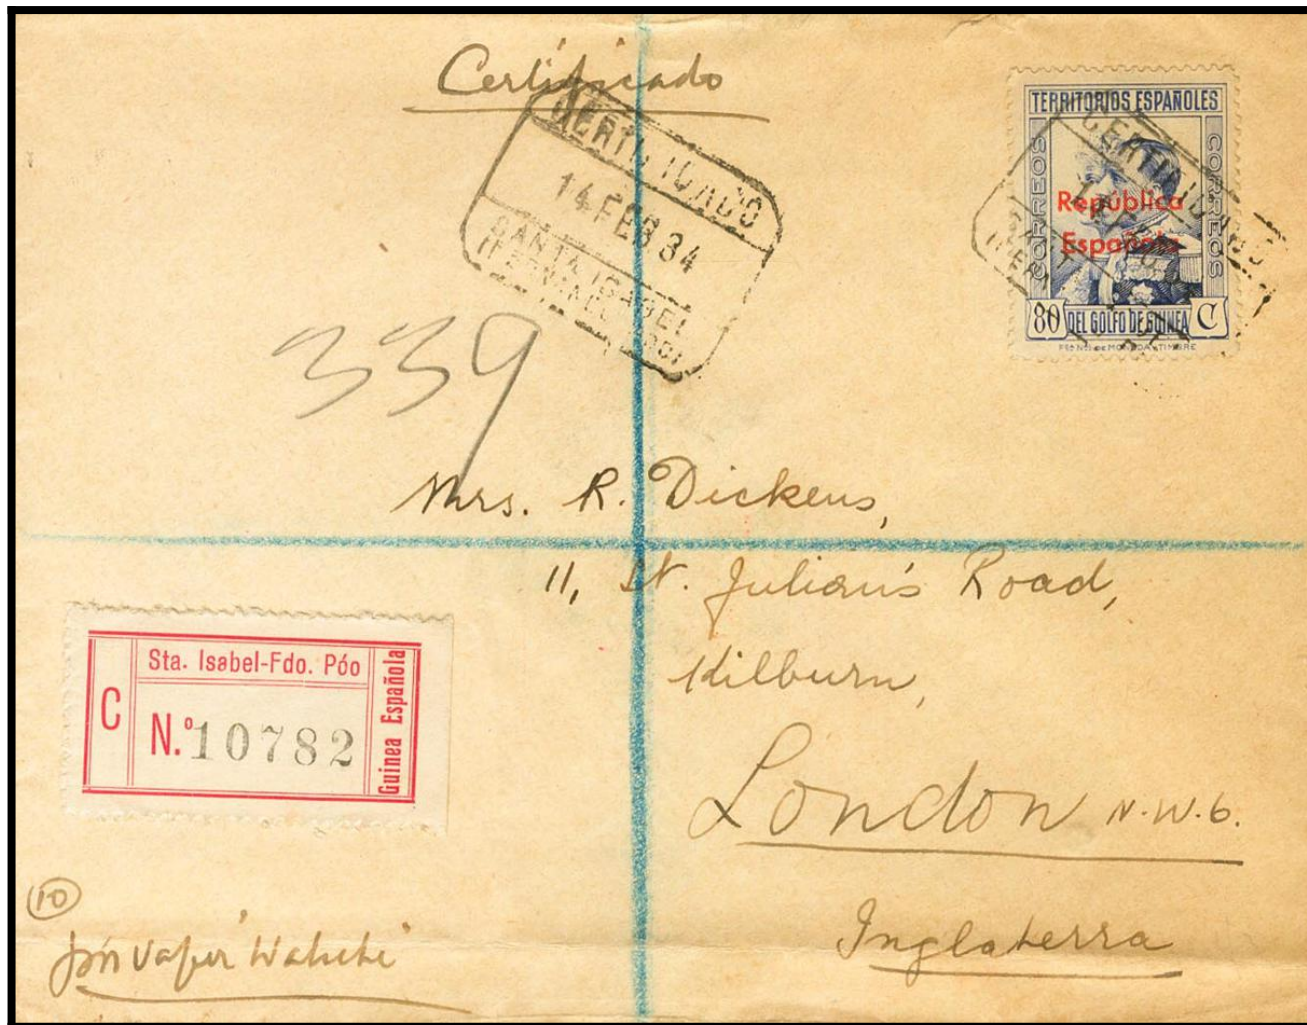 Certificado
CERTIFICADO
14 FEB 34
SANTA ISABEL
(FERNANDO POO)
TERRITORIOS ESPAÑOLES
CORREOS
CORREOS
República
Española
80 DEL GOLFO DE GUINEA C
CERTIFICADO
339
Mrs. R. Dickens,
11, St. Julian's Road,
Kilburn,
London N.W.6.
Inglaterra
Sta. Isabel-Fdo. Póo
C
N.º 10782
Guinea Española
10
vapor